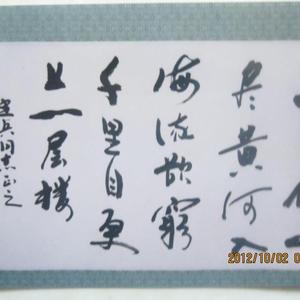 尽黄河入
海流欲窮
千里目更
上一层楼
兵同志正之
2012/10/02 0